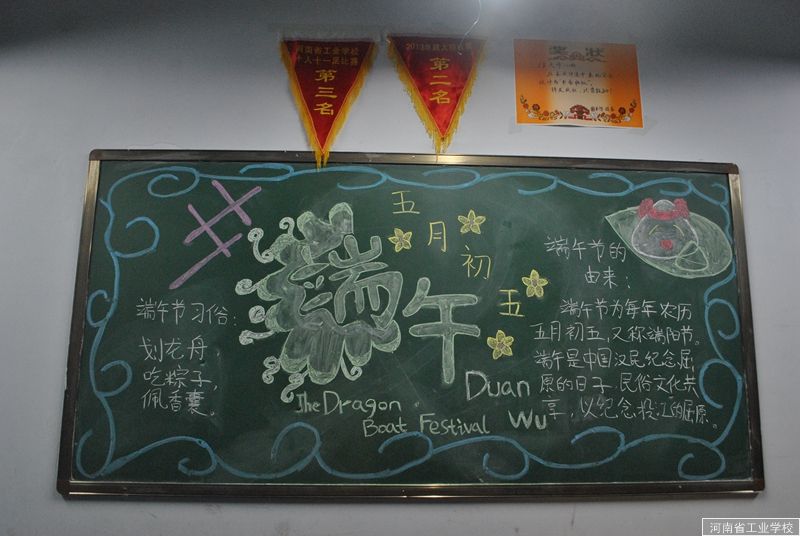 河南省工业学校
十人十一足比赛
第三名
第二名
奖状
五月初五
端午
The Dragon
Boat Festival
Duan
Wu
端午节习俗：
划龙舟，
吃粽子，
佩香囊。
端午节的
由来：
端午节为每年农历
五月初五，又称端阳节。
端午是中国汉民纪念屈
原的日子.民俗文化共
享，以纪念投江的屈原。
河南省工业学校